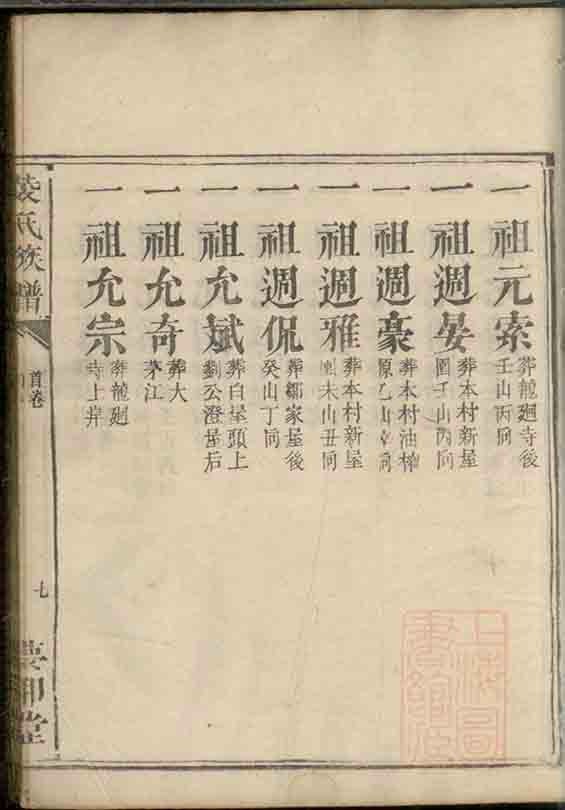 一祖元索 葬龍廻寺後
壬山丙向
一祖週晏 葬本村新屋
園壬山丙向
一祖週豪 葬本村油榨
原乙山辛向
一祖週雅 葬本村新屋
園未山丑向
一祖週侃 葬鄒家屋後
癸山丁向
一祖允斌 葬白屋頭上
劉公澄屋后
一祖允奇 葬大
茅江
一祖允宗 葬龍廻
寺上岸
氏族譜
首卷
七
堂
上海圖
書館藏